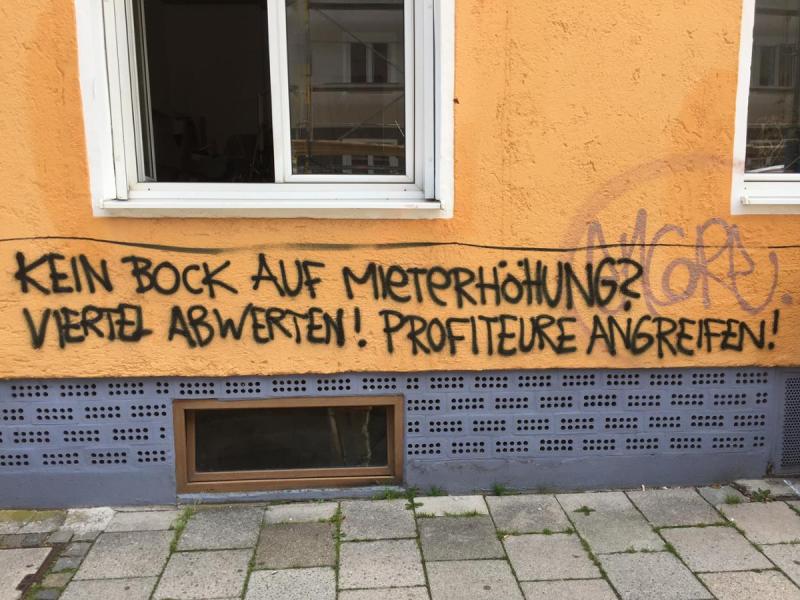 KEIN BOCK AUF MIETERHÖHUNG?
VIERTEL ABWERTEN! PROFITEURE ANGREIFEN!